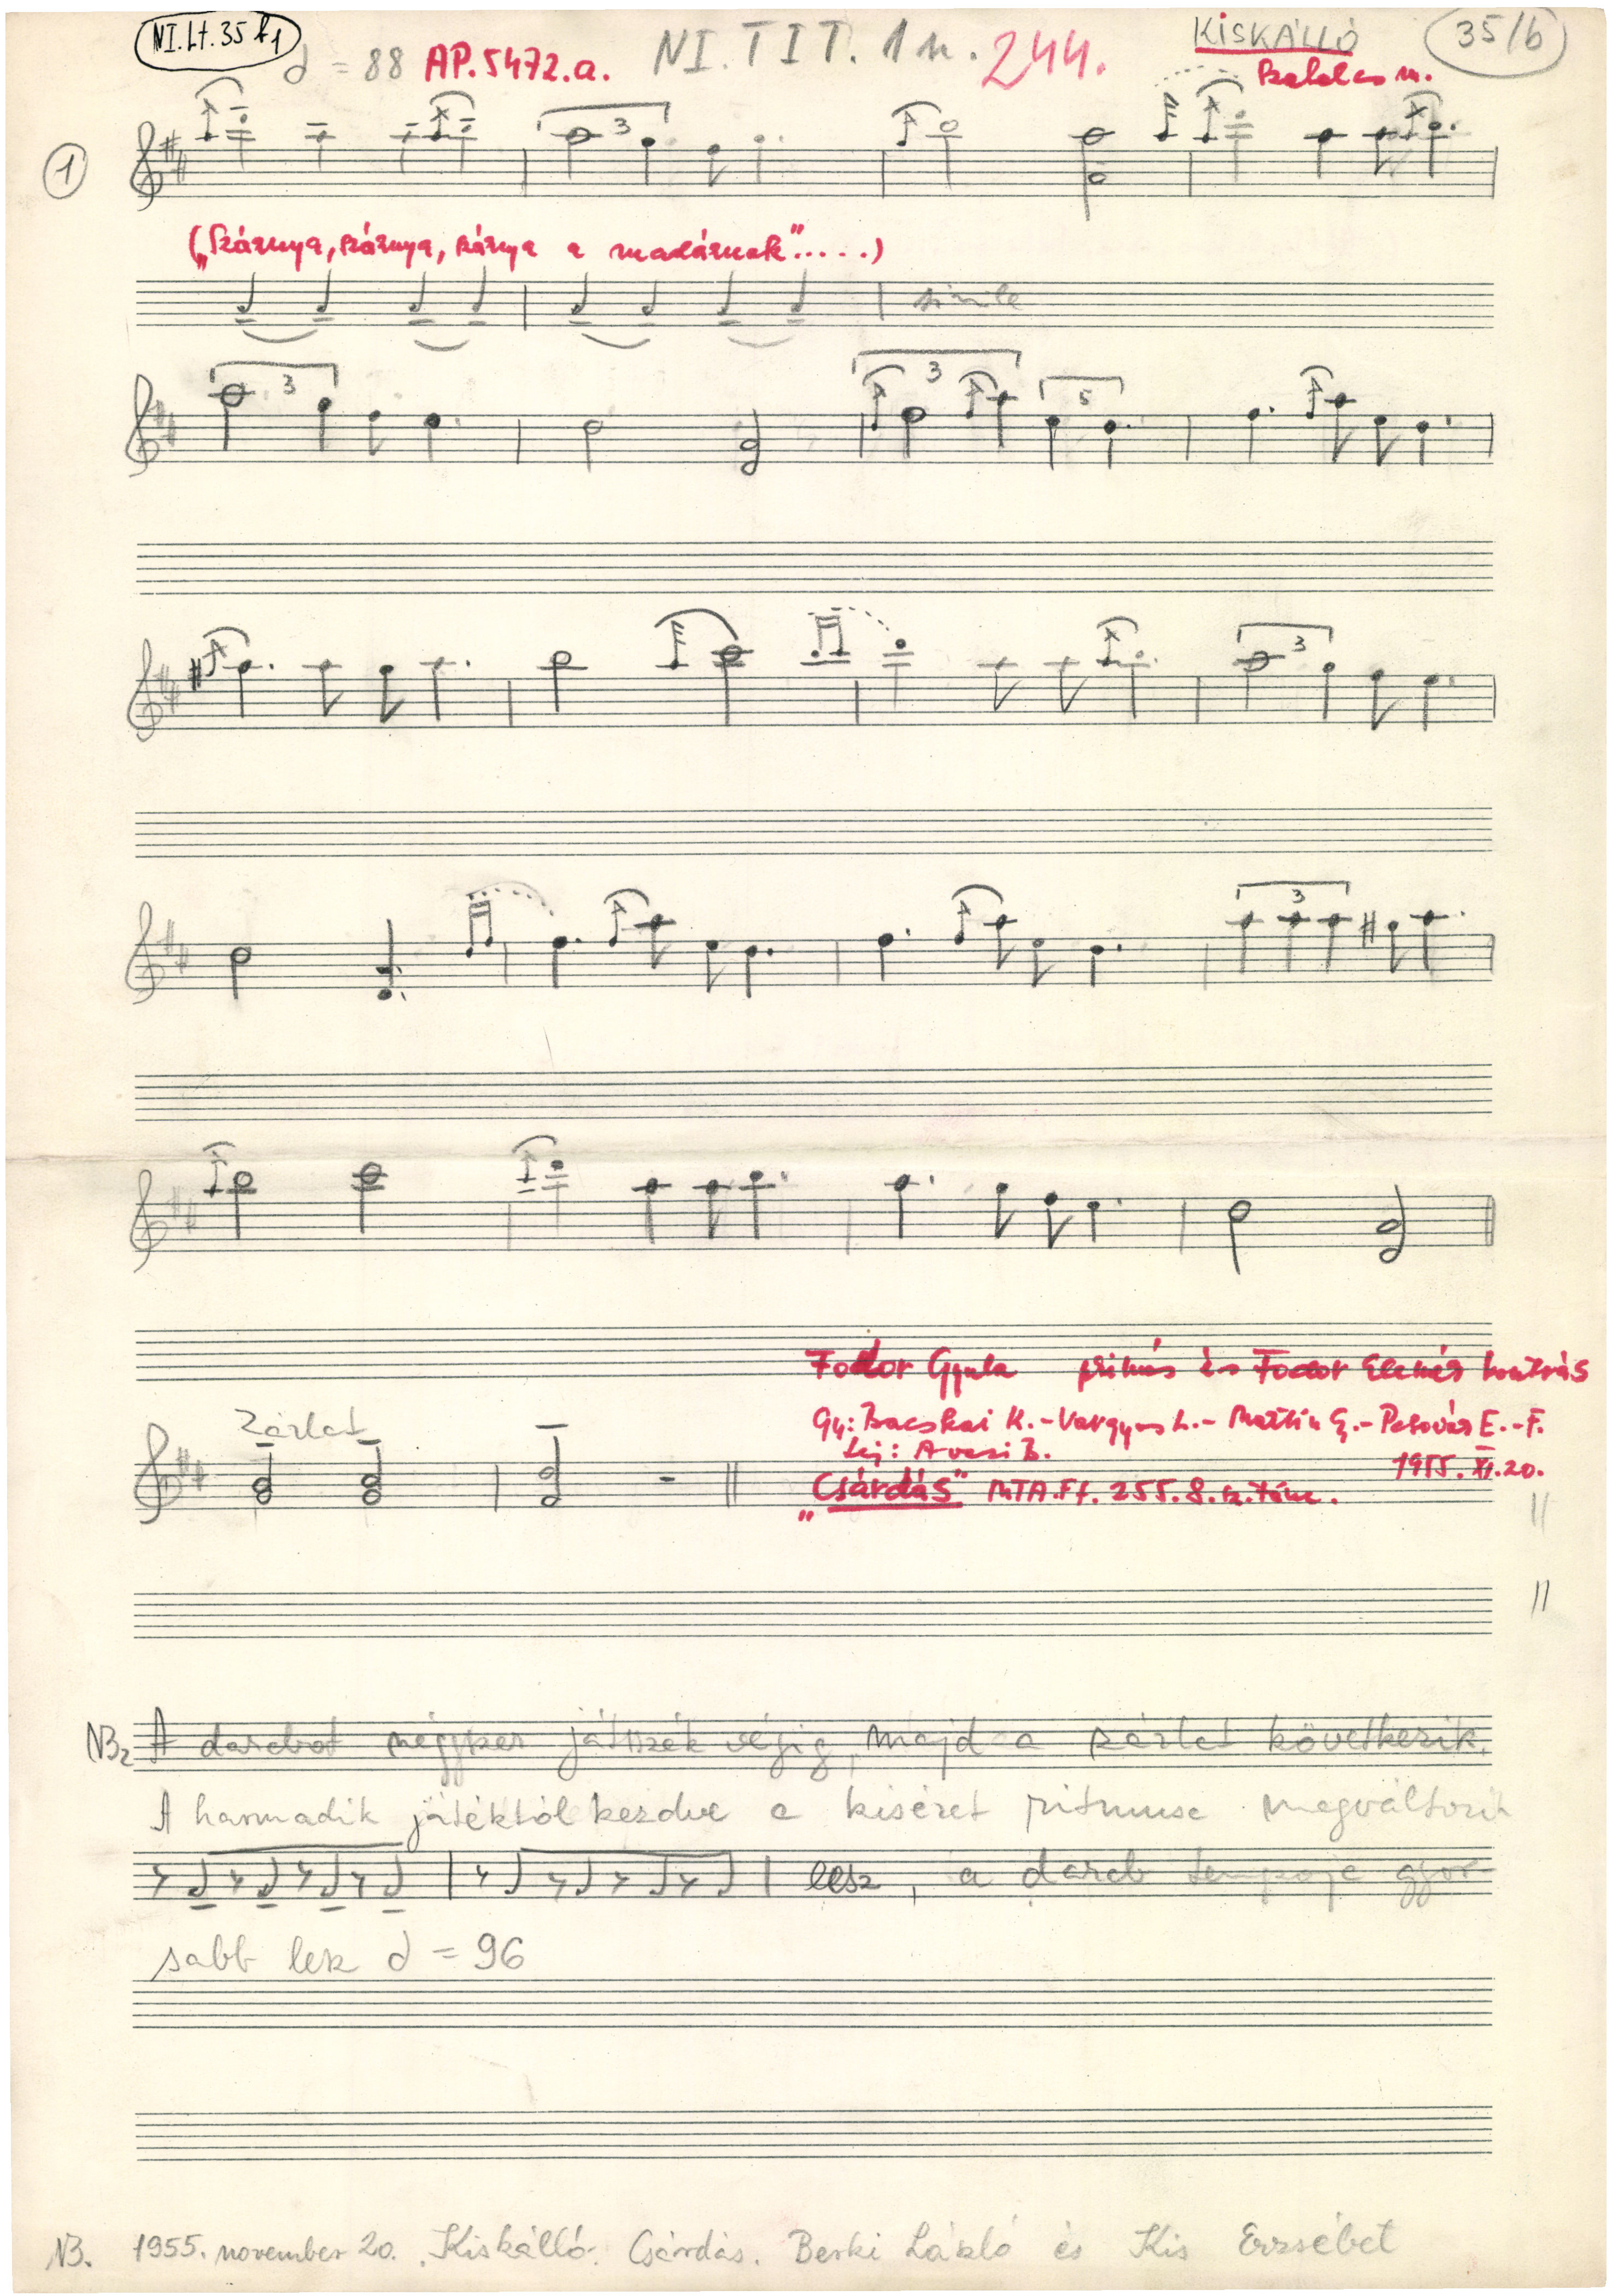 NI. Lt. 35 b1
= 88 AP. 5472. a. NI. TIT. 1 n. 244. KISKÁLLÓ 35/b
Szabolcs m.
3
1
("Szárnya, szárnya, szárnya a madárnak".....)
simile
3 3 5
3
3
Zárlat
Fodor Gyula prímás és Fodor Elemér kontrás
Gy: Bacskai K.-Vargyas L.- Martin G.- Pesovár E.-F.
Lej: Avasi B. 1955. XI. 20.
"Csárdás" MTA. Ft. 255. 8. sz. tánc.
NB2 A darabot négyszer játsszék végig, majd a zárlat következik.
A harmadik játéktól kezdve a kiséret ritmusa megváltozik
lesz, a darab tempoja gyor-
sabb lesz = 96
NB. 1955. november 20. Kiskálló. Csárdás. Berki László és Kis Erzsébet